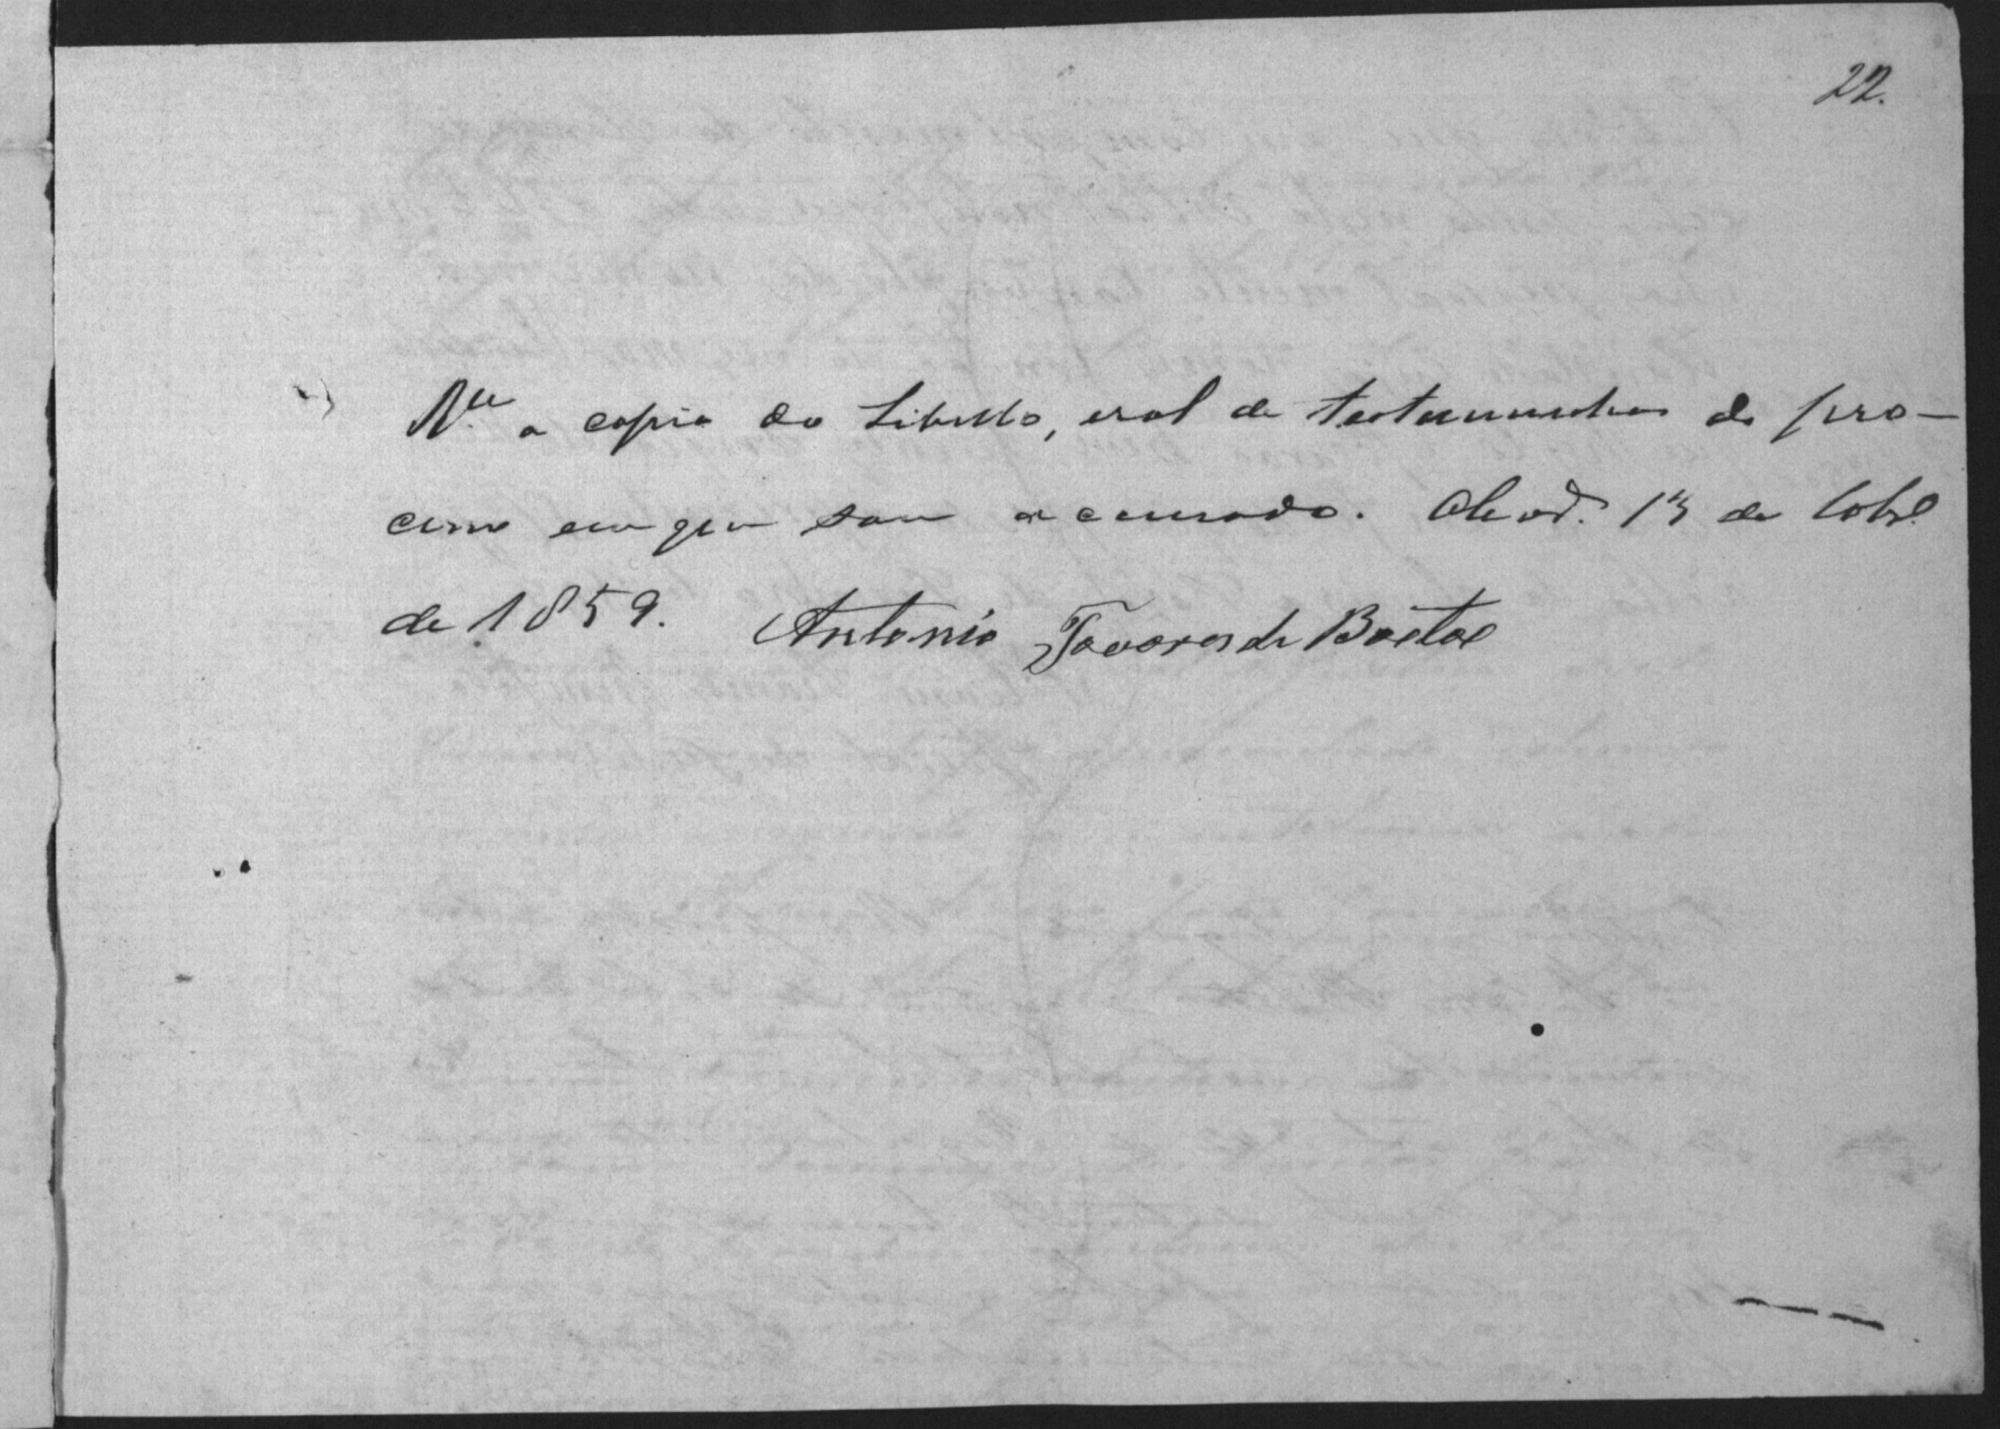 22.
R.cc a copia do Libello, erol de testemunhas do pro-
cesso em que sou accusado. 13 de 8obr.o
de 1859. Antonio Tavares de Bastos